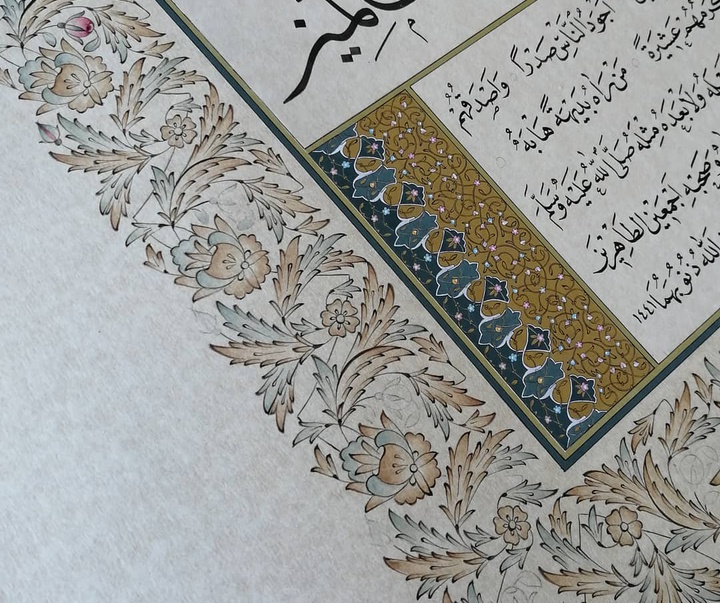 أَجْوَدُ النَّاسِ صَدْرًا وَأَصْدَقُهُمْ
عَشِيرَةً مَنْ رَآهُ بَدِيهَةً هَابَهُ
وَلَا بَعْدَهُ مِثْلَهُ صَلَّى اللّٰهُ عَلَيْهِ وَسَلَّمَ
وَصَحْبِهِ أَجْمَعِينَ الطَّاهِرِينَ
اللّٰهُ ذُنُوبَهُمَا ١٤٤١